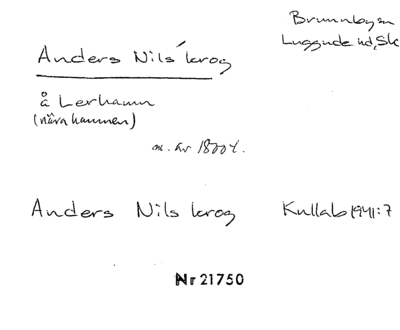 Brunnby sn
Luggude hd, Sk
Anders Nils' krog
å Lerhamn
(nära hamnen)
m. av 1800 t.
Anders Nils krog
Kullab 1941:7
Nr 21750